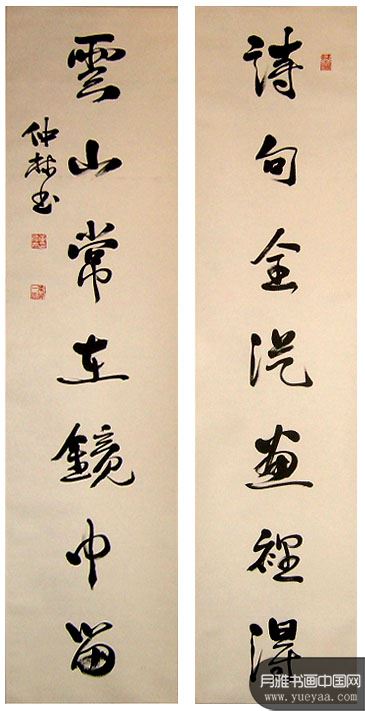 詩句全從畫裡得
雲山常在鏡中留
仲林书
月雅书画中国网
www.yueyaa.com